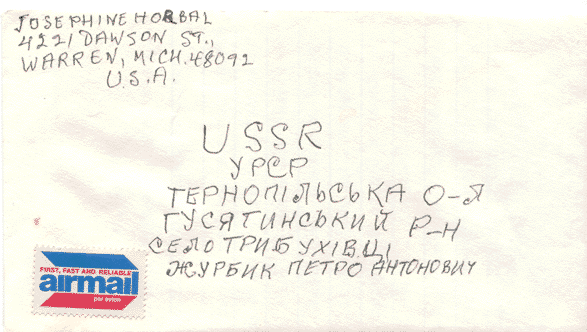 JOSEPHINE HORBAL
4221 DAWSON ST.,
WARREN, MICH. 48092
U.S.A.
USSR
УРСР
ТЕРНОПІЛЬСЬКА О-Я
ГУСЯТИНСЬКИЙ Р-Н
СЕЛО ТРИБУХІВЦІ
ЖУРБИК ПЕТРО АНТОНОВИЧ
FIRST, FAST AND RELIABLE
airmail
par avion